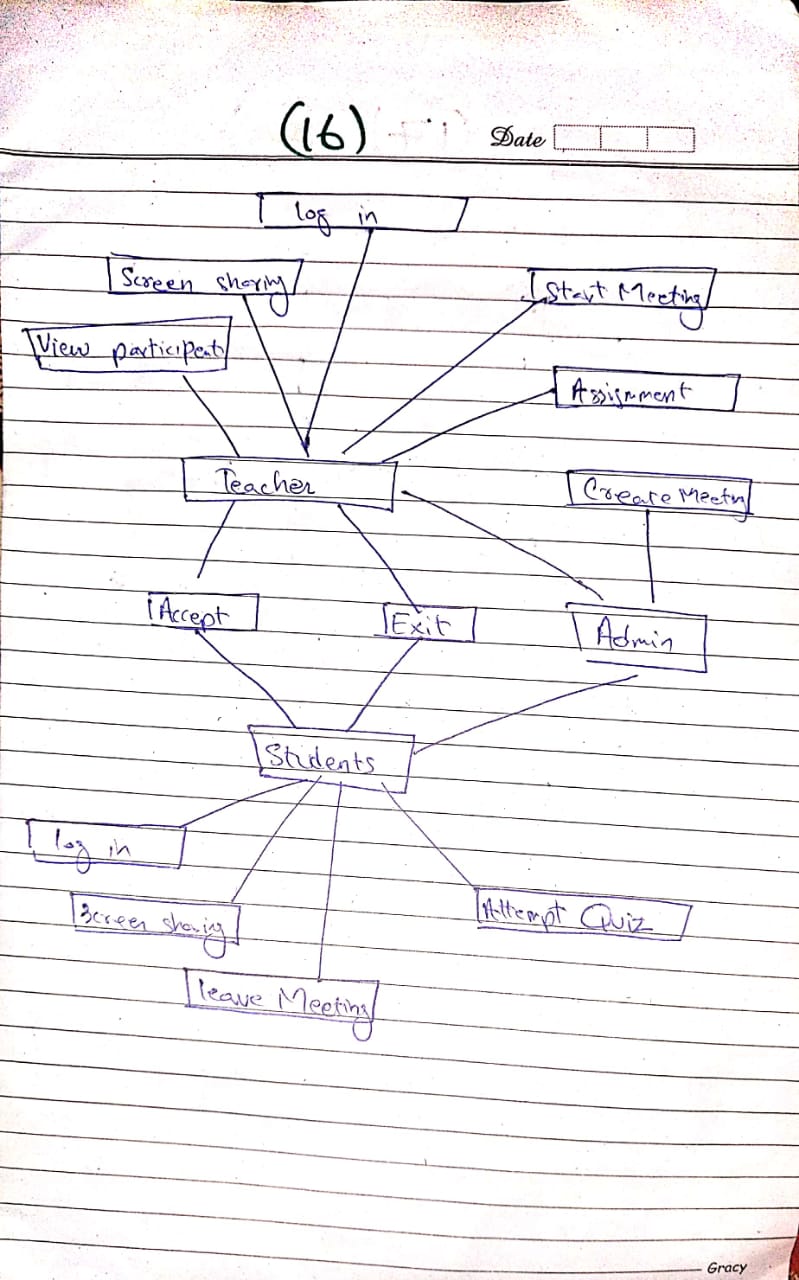 (16)
Date
Log in
Screen sharing
Start Meeting
View participents
Assignment
Teacher
Create Meeting
Accept
Exit
Admin
Students
log in
Screen sharing
Attempt Quiz
leave Meeting
Gracy